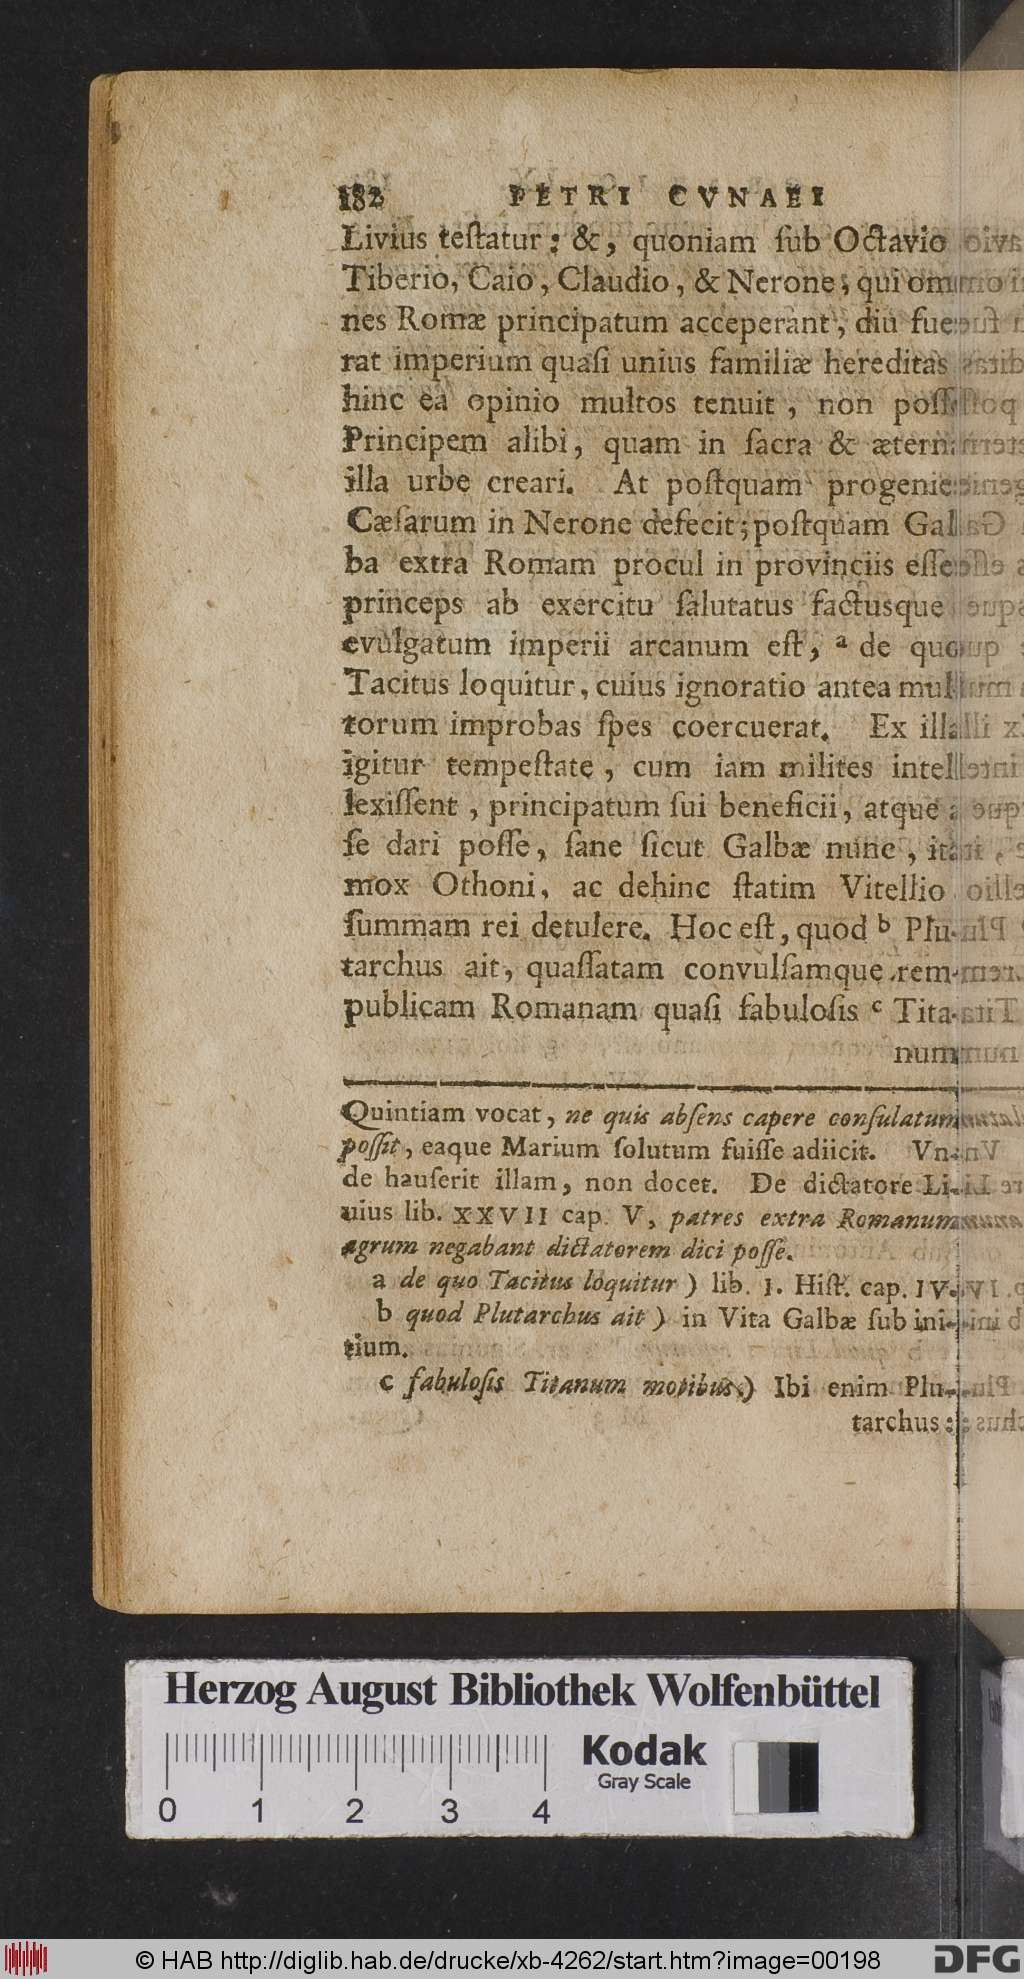 182 PETRI CVNAEI
Livius teſtatur: &, quoniam ſub Octavio
Tiberio, Caio, Claudio, & Nerone, qui om
nes Romæ principatum acceperant, diu fue
rat imperium quaſi unius familiæ hereditas
hinc ea opinio multos tenuit, non poſſ
Principem alibi, quam in ſacra & ætern
illa urbe creari. At poſtquam progenie
Cæſarum in Nerone defecit; poſtquam Gal
ba extra Romam procul in provinciis eſſe
princeps ab exercitu ſalutatus factusque
evulgatum imperii arcanum eſt, a de quo
Tacitus loquitur, cuius ignoratio antea mul
torum improbas ſpes coercuerat. Ex illa
igitur tempeſtate, cum iam milites intel
lexiſſent, principatum ſui beneficii, atque a
ſe dari poſſe, ſane ſicut Galbæ nunc, ita
mox Othoni, ac dehinc ſtatim Vitellio
ſummam rei detulere. Hoc eſt, quod b Plu-
tarchus ait, quaſſatam convulſamque rem-
publicam Romanam quaſi fabuloſis c Tita-
num
Quintiam vocat, ne quis abſens capere conſulatum
poſſit, eaque Marium ſolutum fuiſſe adiicit. Vn-
de hauſerit illam, non docet. De dictatore Li-
uius lib. XXVII cap. V, patres extra Romanum
agrum negabant dictatorem dici poſſe.
a de quo Tacitus loquitur) lib. I. Hiſt. cap. IV.
b quod Plutarchus ait) in Vita Galbæ ſub ini-
tium.
c fabuloſis Titanum motibus) Ibi enim Plu-
tarchus:
Herzog August Bibliothek Wolfenbüttel
Kodak
Gray Scale
0 1 2 3 4
© HAB http://diglib.hab.de/drucke/xb-4262/start.htm?image=00198
DFG